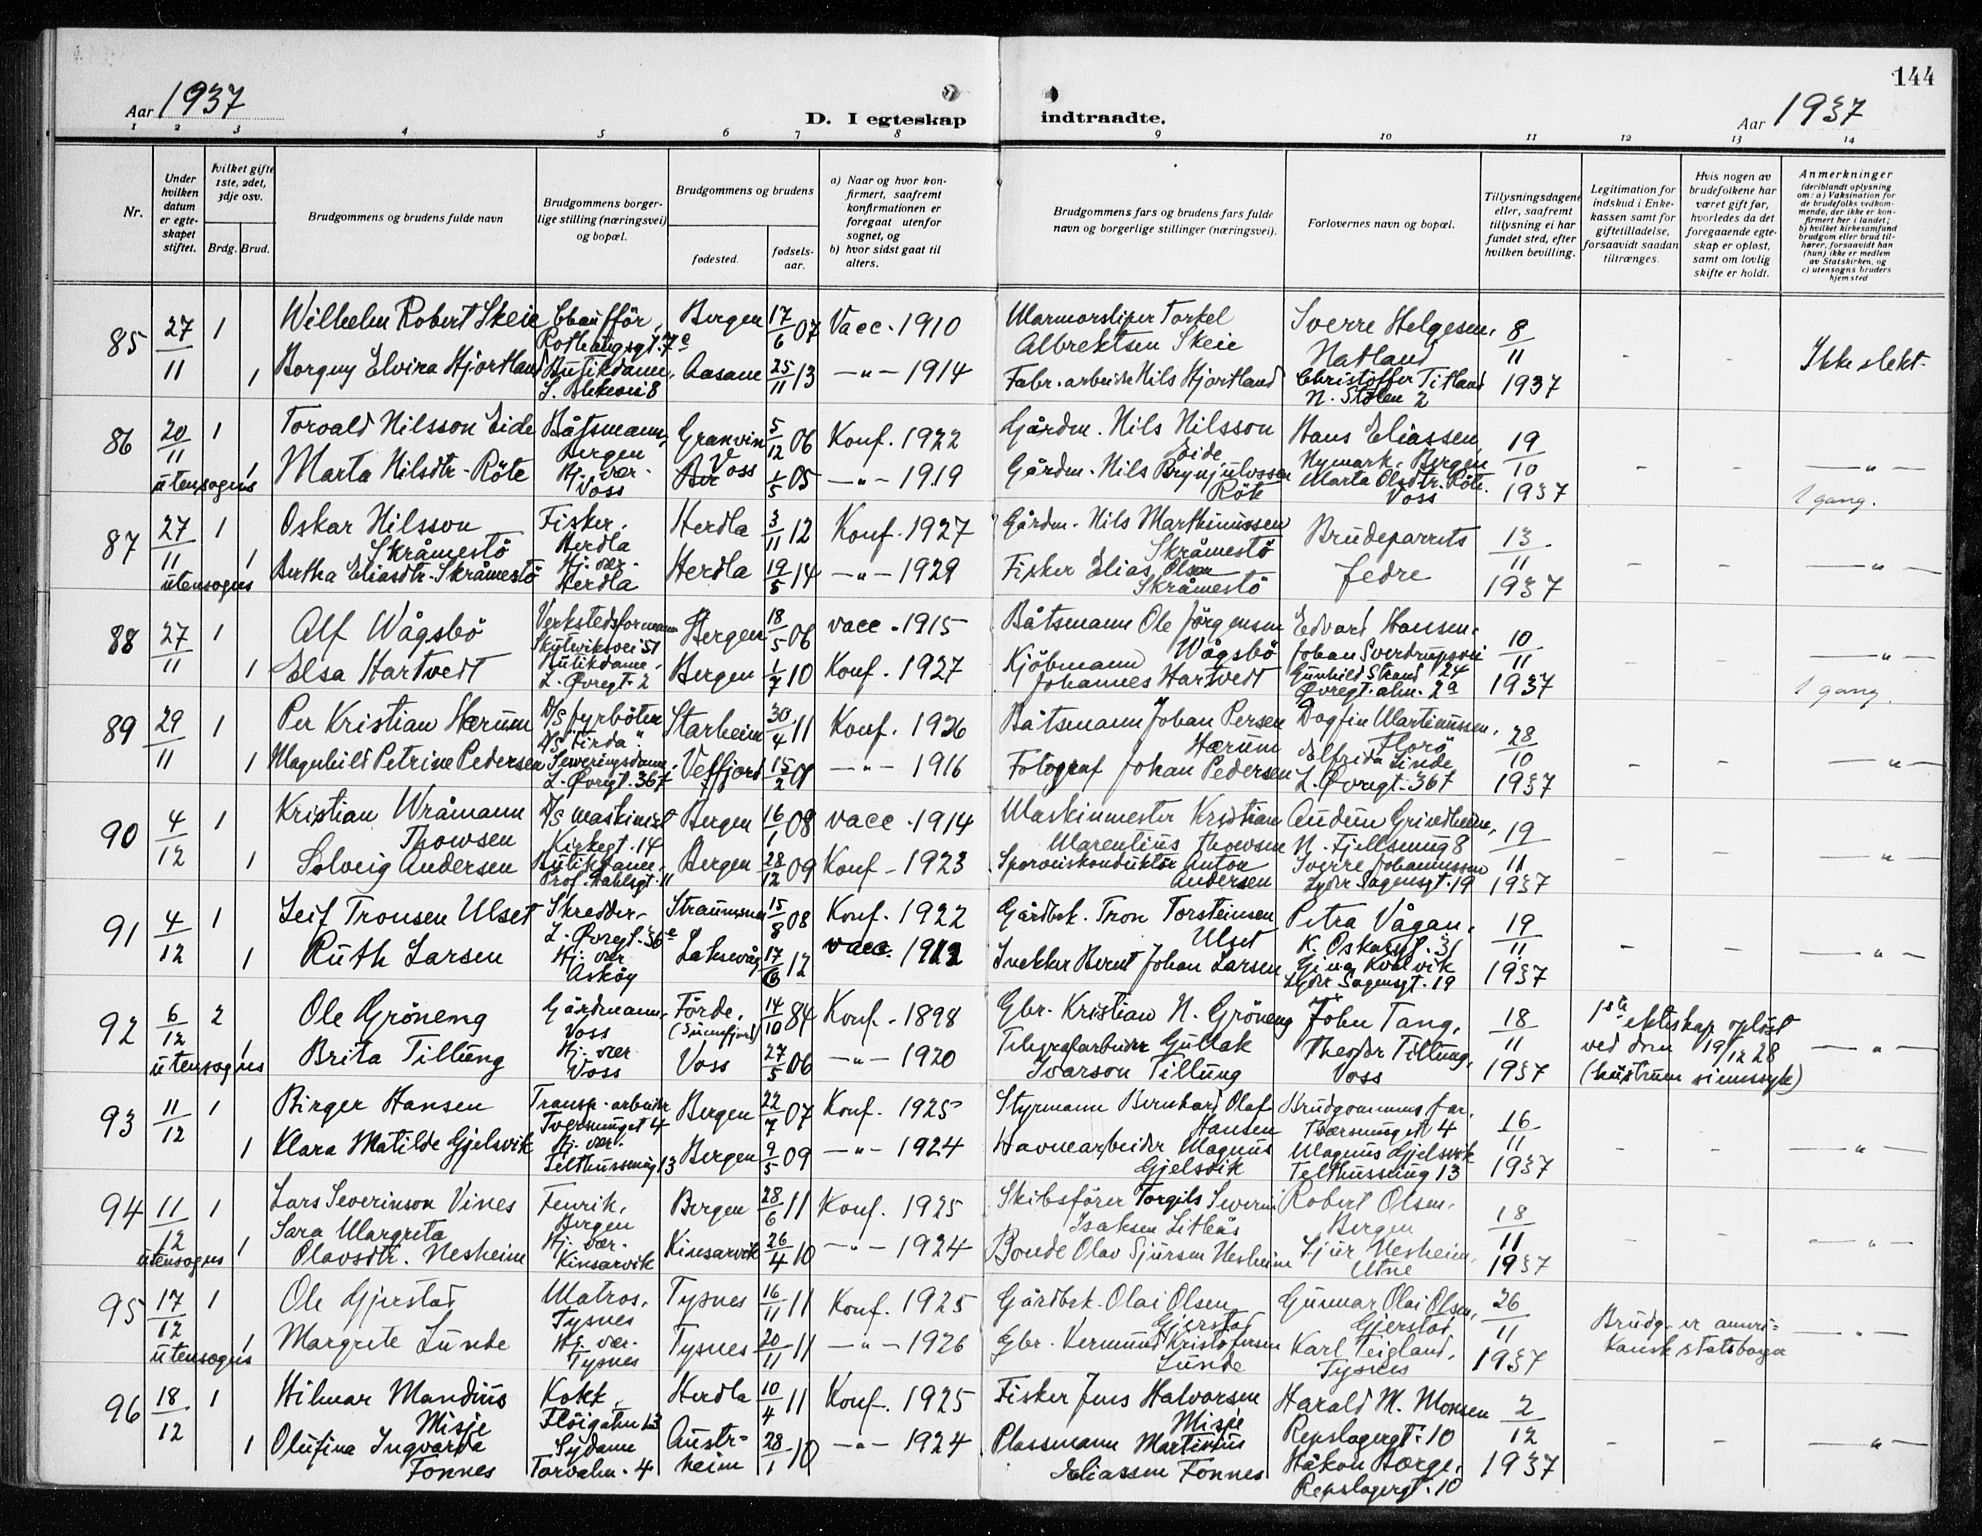 144
Aar 1937
D. I egteskap indtraadte.
Aar 1937
1 2 3 4 5 6 7 8 9 10 11 12 13 14
Nr.
Under hvilken datum er egteskapet stiftet.
Hvilket gifte 1ste, 2det, 3dje osv.
Brdg. Brud.
Brudgommens og brudens fulde navn
Brudgommens borgerlige stilling (næringsvei) og bopæl.
Brudgommens og brudens
fødested.
fødselsaar.
a) Naar og hvor konfirmert, saafremt konfirmationen er foregaat utenfor sognet, og
b) hvor sidst gaat til alters.
Brudgommens fars og brudens fars fulde navn og borgerlige stillinger (næringsvei).
Forlovernes navn og bopæl.
Tillysningsdagene eller, saafremt tillysning ei har fundet sted, efter hvilken bevilling.
Legitimation for indskud i Enkekassen samt for giftetilladelse, forsaavidt saadan tiltrænges.
Hvis nogen av brudefolkene har været gift før, hvorledes da det foregaaende egteskap er opløst, samt om lovlig skifte er holdt.
Anmerkninger (deriblandt oplysning om: a) Vaksination for de brudefolks vedkommende, der ikke er konfirmert her i landet; b) hvilket kirkesamfund brudgom eller brud tilhører, forsaavidt han (hun) ikke er medlem av Statskirken, og c) utensogns bruders hjemsted
85 27/11 1 Wilhelm Robert Skeie Chauffør, Rothaugsgt. 7e Bergen 17/6 07 Vacc. 1910 Marmorsliper Torkel Albrektsen Skeie Sverre Helgesen, Natland 8/11 1937 - - Ikke slekt.
1 Borgny Elvira Hjortland Butikdame, Aasane 25/11 13 -"- 1914 Fabr. arbeider Nils Hjortland Christoffer Titland N. Stølen 2
86 20/11 1 Torvald Nilsson Eide Båtsmann, Bergen Granvin 5/12 06 Konf. 1922 Gårdm. Nils Nilsson Eide Hans Eliassen Nymark, Bergen 19/10 1937 - - -"-
utensogns 1 Marta Nilsdtr. Röte Hj. vær. Voss Voss 1/5 05 -"- 1919 Gårdm. Nils Brynjulvssen Röte Marta Olsdtr. Röte. Voss 1 gang.
87 27/11 1 Oskar Nilsson Skråmestö Fisker. Herdla Herdla 3/11 12 Konf. 1927 Gårdm. Nils Marthinussen Skråmestö Brudeparrets fedre 13/11 1937 - - -"-
utensogns 1 Bertha Eliasdtr. Skråmestö Hj. vær. Herdla Herdla 19/5 14 -"- 1929 Fisker Elias Olsen Skråmestö
88 27/11 1 Alf Wågsbö Verkstedsformann Skuteviksvei 51 Bergen 18/5 06 vacc. 1915 Båtsmann Ole Jörgensen Wågsbö Edvard Hansen, Johan Sverdrupsvei 24 10/11 1937 - - -"-
1 Elsa Hartvedt Butikdame, L. Øvregt. 2 Bergen 1/7 10 Konf. 1927 Kjöbmann Johannes Hartvedt Gunhild Strand Øvregt. alm. 2a 1 gang.
89 29/11 1 Per Kristian Hærum D/S fyrböter D/S "Firda". Starheim 30/4 11 Konf. 1926 Båtsmann Johan Persen Hærum Dagfin Martinussen, Florö 28/10 1937 - - -"-
1 Magnhild Petrine Pedersen Serveringsdame, L. Øvregt. 36 Vefjord 15/2 01 -"- 1916 Fotograf Johan Pedersen Elfrida Linde L. Øvregt. 36
90 4/12 1 Kristian Wråmann Thowsen D/S maskinist Kirkegt. 14 Bergen 16/1 08 vacc. 1914 Maskinmester Kristian Marentius Thowsen Audun Grindheim, N. Fjellsmug 8 19/11 1937 - - -"-
1 Solveig Andersen Butikdame, Prof. Dahlsgt. 11 Bergen 28/12 09 Konf. 1923 Sporveiskonduktör Anton Andersen Sverre Johannessen Lyder Sagensgt. 19
91 4/12 1 Leif Tronsen Ulset Skredder, L. Øvregt. 36e Straumsnes 15/8 08 Konf. 1922 Gårdbrk. Tron Torsteinsen Ulset Petra Vågan, K. Oskarsgt. 31 19/11 1937 - - -"-
1 Ruth Larsen Hj. vær Askøy Laksevåg 17/6 12 vacc. 1912 Snekker Bernt Johan Larsen Lyder Sagensgt. 19
92 6/12 2 Ole Gröneng Gårdmann, Voss Förde, (Sunnfjord) 14/10 84 Konf. 1898 Gbr. Kristian N. Gröneng John Tang, 18/11 1937 1ste ekteskap oplöst ved dom 19/12 28 (hustruen sinnssyk) -"-
utensogns 1 Brita Tillung Hj. vær Voss Voss 27/5 06 -"- 1920 Telegrafarbeider Gullak Ivarson Tillung Theodor Tillung, Voss
93 11/12 1 Birger Hansen Transp. arbeider Tversmuget 4 Bergen 22/7 07 Konf. 1925 Styrmann Bernhard Olaf Hansen Brudgommens far. Tversmuget 4 16/11 1937 - - -"-
1 Klara Matilde Gjelsvik Hj. vær. Telthussmug 13 Bergen 9/5 09 -"- 1924 Havnearbeider Magnus Gjelsvik Magnus Gjelsvik Telthussmug 13
94 11/12 1 Lars Severinson Vines Fenrik, Bergen Bergen 28/6 11 Konf. 1925 Skibsförer Torgils Severin Isaksen Robert Olsen, Bergen 18/11 1937 - - -"-
utensogns 1 Sara Margreta Olavsdtr. Nesheim Hj. vær. Kinsarvik Kinsarvik 26/4 10 -"- 1924 Bonde Olav Sjursen Nesheim Sjur Nesheim, Utne
95 17/12 1 Ole Gjerstad Matros, Tysnes Tysnes 16/11 11 Konf. 1925 Gårdbrk. Olai Olsen Gjerstad Gunnar Olai Olsen, Gjerstad 26/11 1937 Brudg. er amerikansk statsborger -"-
utensogns 1 Margrete Lunde Hj. vær. Tysnes Tysnes 20/11 11 -"- 1926 Gbr. Vermund Kristofersen Lunde Karl Teigland, Tysnes
96 18/12 1 Hilmar Mandius Misje Kokk, Herdla 10/4 11 Konf. 1925 Fisker Jens Halvorsen Misje Harald M. Monsen Repslagergt. 10 2/12 1937 - - -"-
1 Olufina Ingvarda Fonnes Sydame Torvalm. 4 Austrheim 28/1 10 -"- 1924 Plassmann Martinius Eliassen Fonnes Håkon Borge, Repslagergt. 10